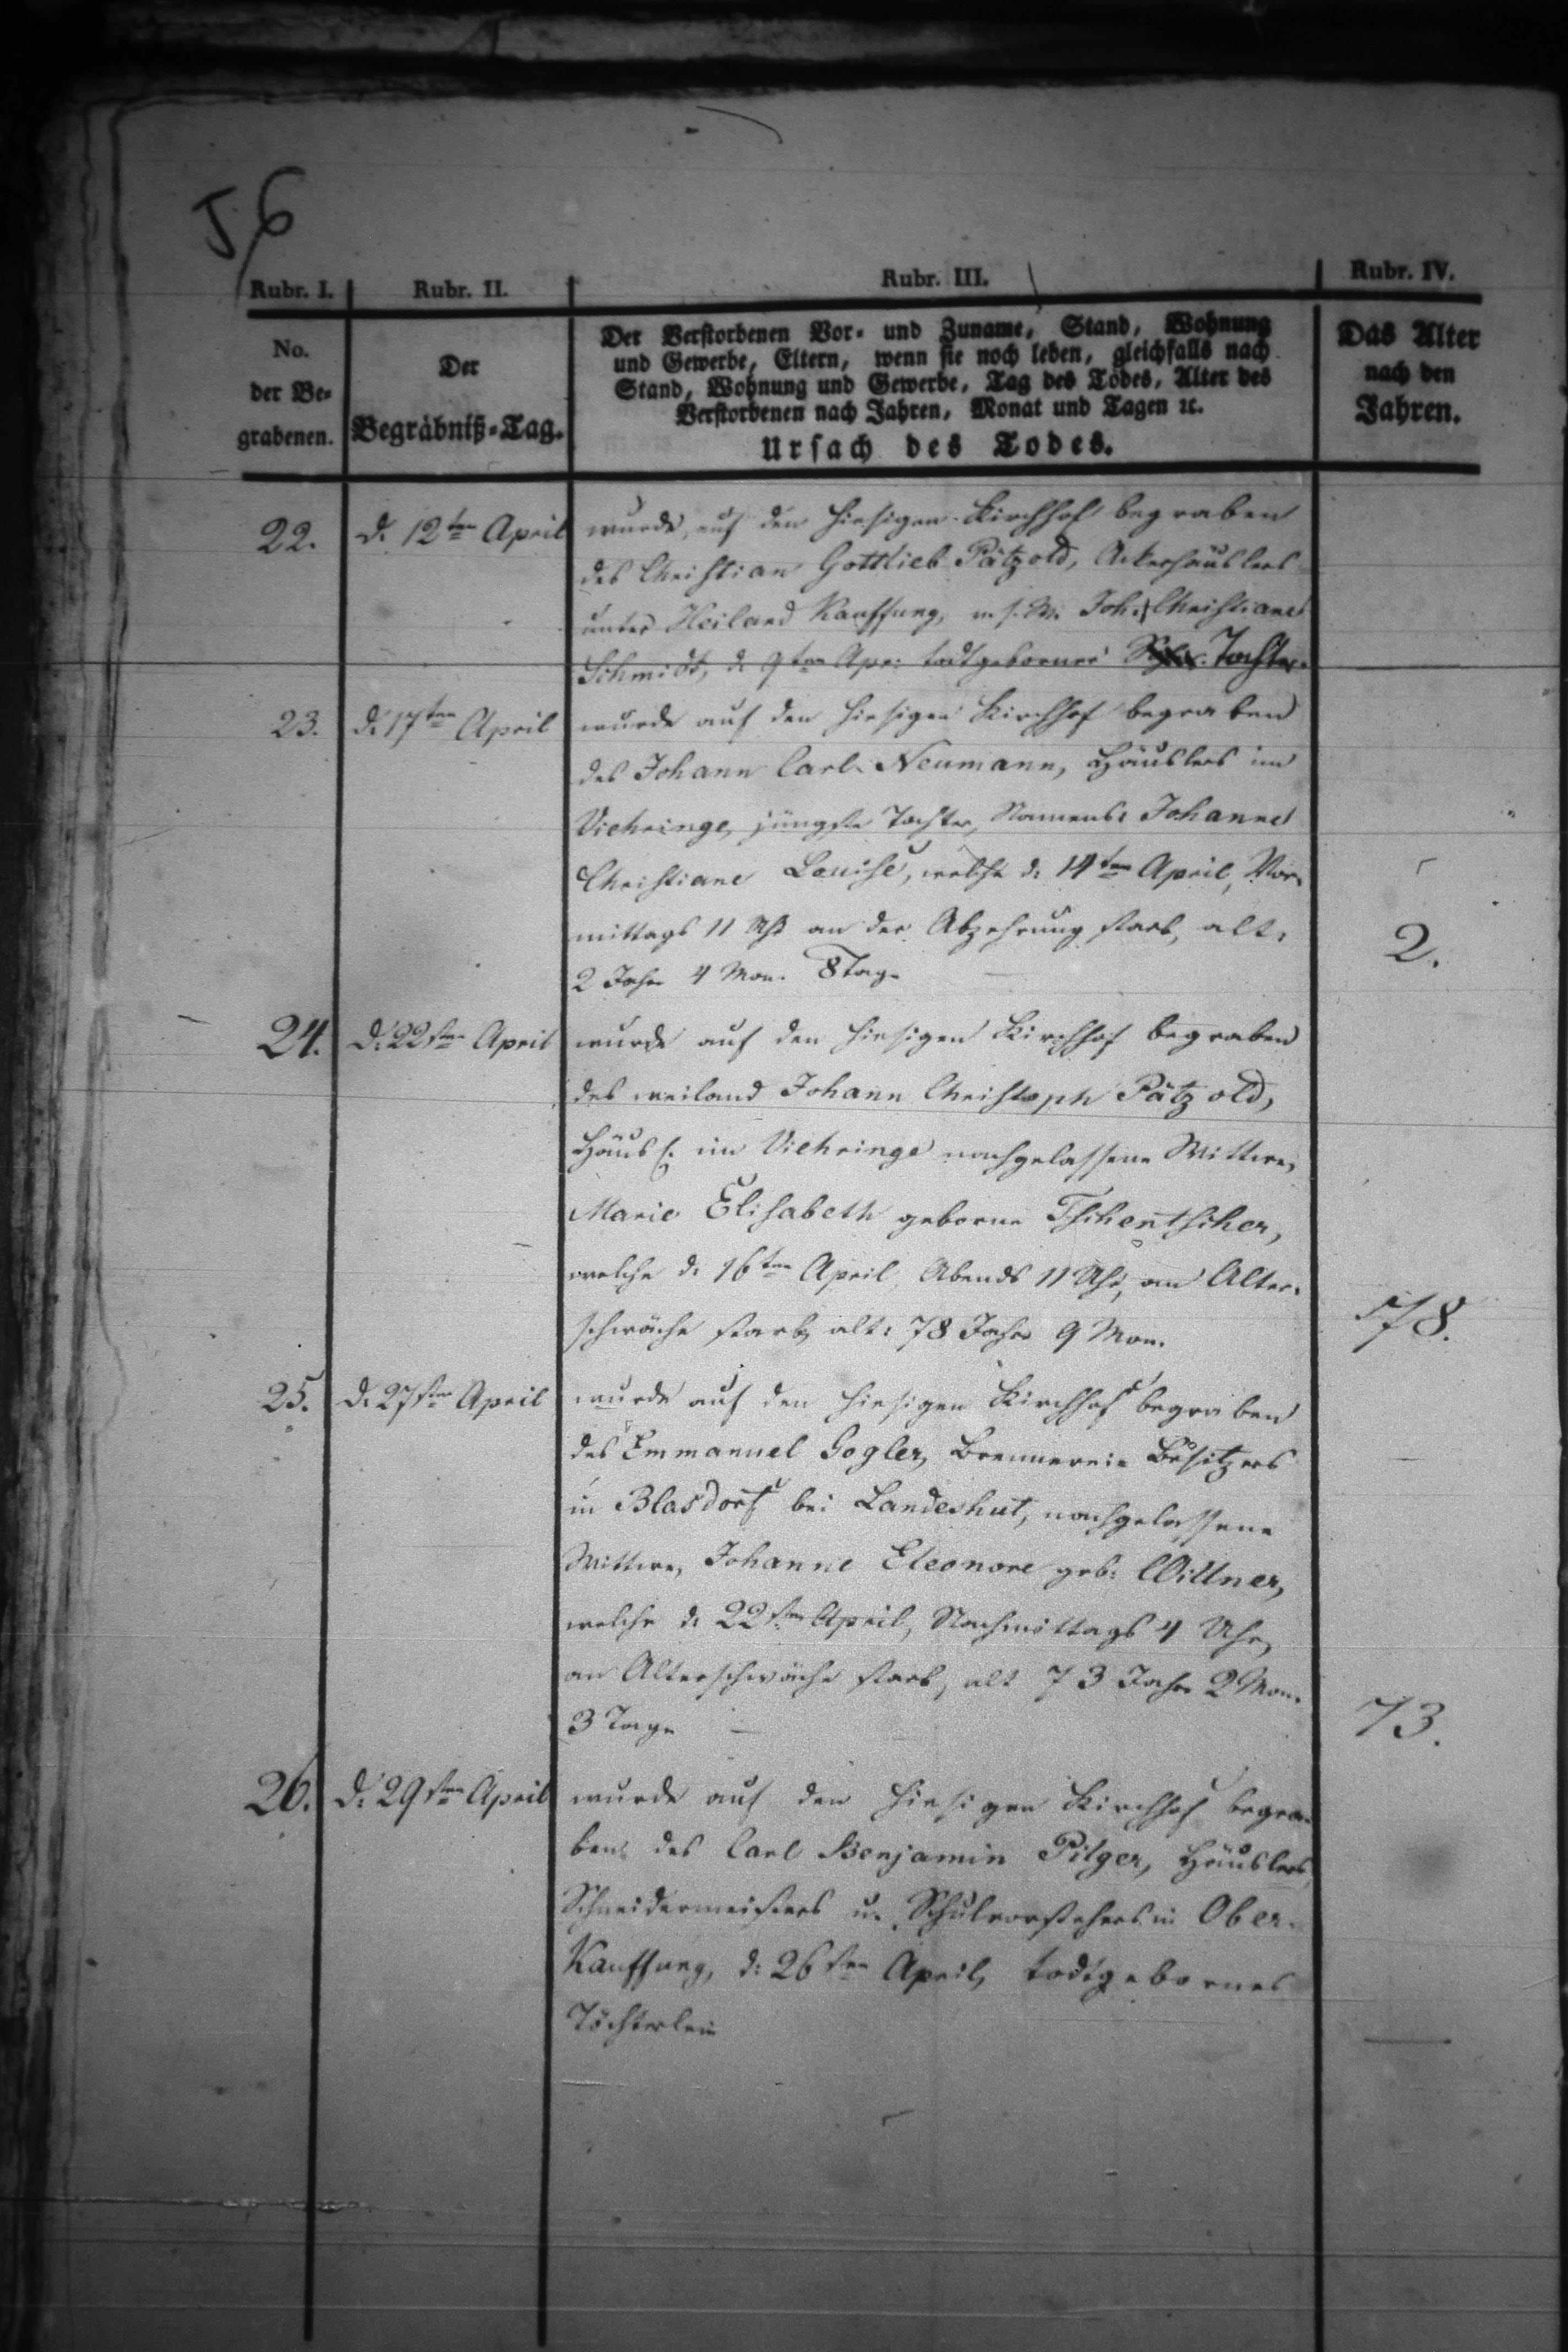 56
Rubr. I.
Rubr. II.
Rubr. III.
Rubr. IV.
No.
der Be-
grabenen.
Der
Begräbniß-Tag.
Der Verstorbenen Vor- und Zuname, Stand, Wohnung
und Gewerbe, Eltern, wenn sie noch leben, gleichfalls nach
Stand, Wohnung und Gewerbe, Tag des Todes, Alter des
Verstorbenen nach Jahren, Monat und Tagen ꝛc.
Ursach des Todes.
Das Alter
nach den
Jahren.
22.
d. 12ten April
wurde, auf den hiesigen Kirchhof begraben
des Christian Gottlieb Pätzold, Ackerhäuslers
unter Heiland Kauffung, m. s. W. Joh. Christiane
Schmidt, d. 9ten Apr: todtgeborner Tochter.
23.
d. 17ten April
wurde auf den hiesigen Kirchhof begraben
des Johann Carl Neumann, Häuslers im
Viehringe, jüngste Tochter, Namens: Johanne
Christiane Louise, welche d. 14ten April, Vor-
mittags 11 Uhr an der Abzehrung starb, alt:
2 Jahr 4 Mon. 8 Tage
2.
24.
d. 22sten April
wurde auf den hiesigen Kirchhof begraben
des weiland Johann Christoph Pätzold,
Häusl. im Viehringe nachgelassene Wittwe,
Marie Elisabeth geborne Tschentscher,
welche d. 16ten April, Abends 11 Uhr, an Alter-
schwäche starb, alt: 78 Jahr 9 Mon.
78.
25.
d. 27sten April
wurde auf den hiesigen Kirchhof begraben
des Emmanuel Gogler, Brennerei-Besitzers
in Blasdorf bei Landeshut, nachgelassene
Wittwe, Johanne Eleonore geb: Wittner,
welche d. 22sten April, Nachmittags 4 Uhr,
an Alterschwäche starb, alt 73 Jahr 2 Mon.
3 Tage
73.
26.
d. 29sten April
wurde auf den hiesigen Kirchhof begra-
ben des Carl Benjamin Pilger, Häuslers,
Schneidermeisters u. Schulvorstehers in Ober-
Kauffung, d: 26sten April, todtgebornes
Töchterlein